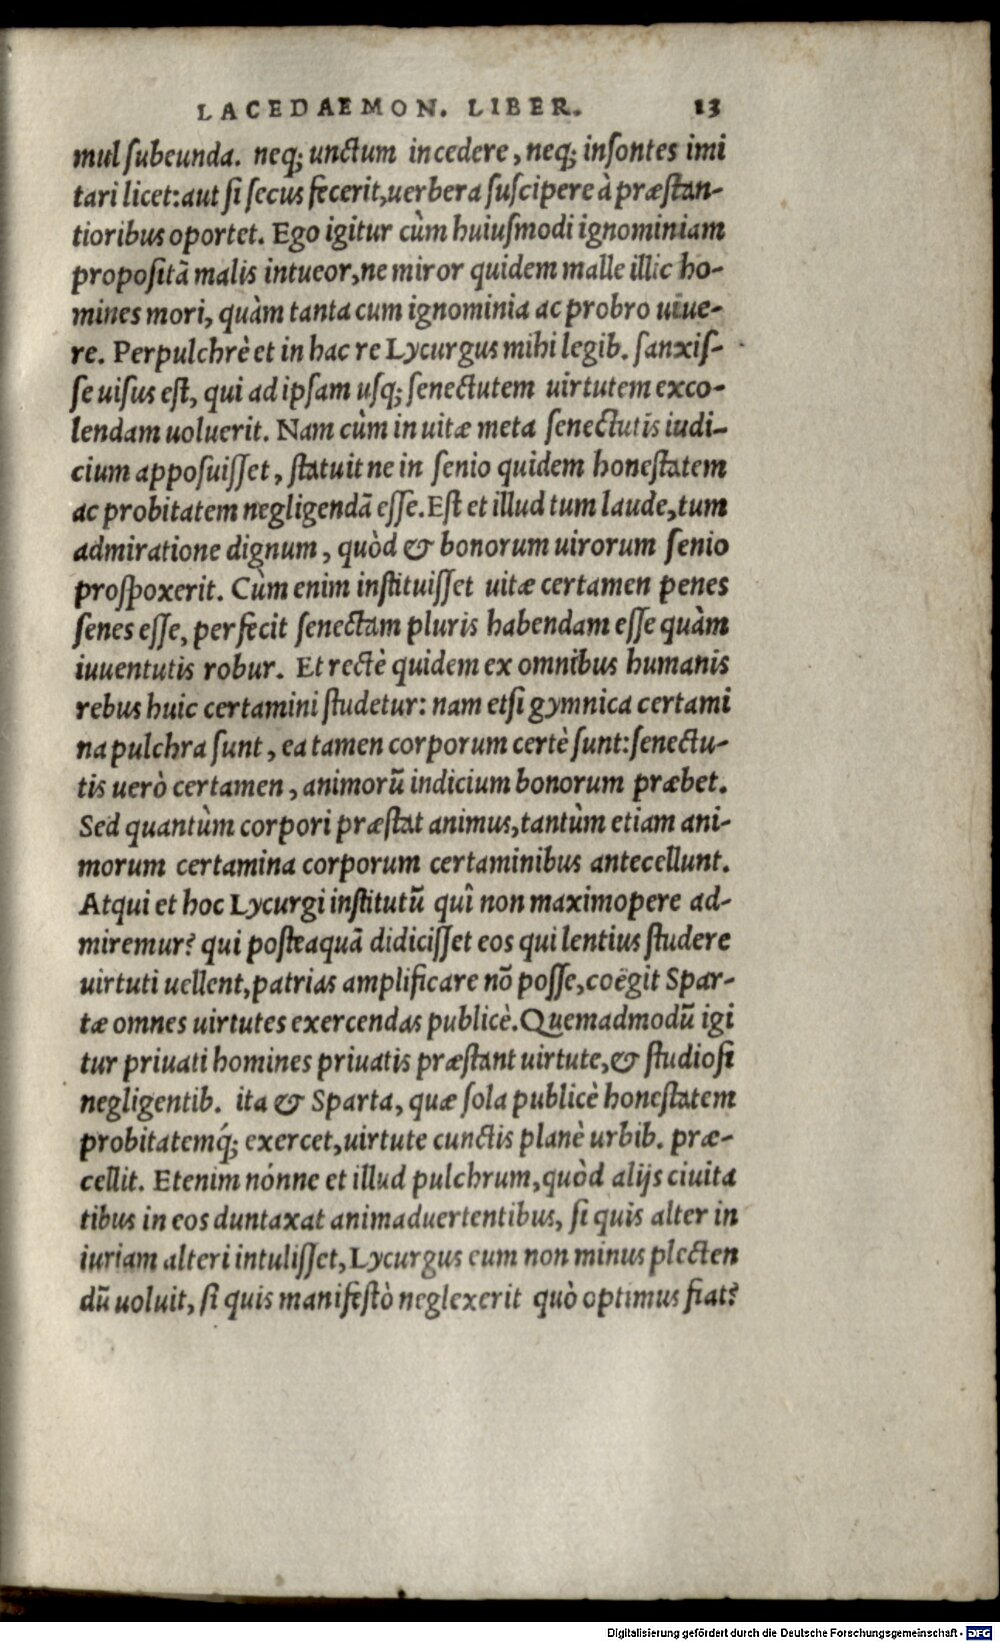 LACEDAEMON. LIBER. 13
mul ſubeunda. neq; unctum incedere, neq; inſontes imi
tari licet: aut ſi ſecus fecerit, uerbera ſuſcipere à præſtan-
tioribus oportet. Ego igitur cùm huiuſmodi ignominiam
propoſitā malis intueor, ne miror quidem malle illic ho-
mines mori, quàm tanta cum ignominia ac probro uiue-
re. Perpulchrè et in hac re Lycurgus mihi legib. ſanxiſ-
ſe uiſus eſt, qui ad ipſam uſq; ſenectutem uirtutem exco-
lendam uoluerit. Nam cùm in uitæ meta ſenectutis iudi-
cium appoſuiſſet, ſtatuit ne in ſenio quidem honeſtatem
ac probitatem negligendā eſſe. Eſt et illud tum laude, tum
admiratione dignum, quòd & bonorum uirorum ſenio
proſpoxerit. Cùm enim inſtituiſſet uitæ certamen penes
ſenes eſſe, perfecit ſenectam pluris habendam eſſe quàm
iuuentutis robur. Et rectè quidem ex omnibus humanis
rebus huic certamini ſtudetur: nam etſi gymnica certami
na pulchra ſunt, ea tamen corporum certè ſunt: ſenectu-
tis uerò certamen, animorū indicium bonorum præbet.
Sed quantùm corpori præſtat animus, tantùm etiam ani-
morum certamina corporum certaminibus antecellunt.
Atqui et hoc Lycurgi inſtitutū quî non maximopere ad-
miremur? qui poſteaquā didiciſſet eos qui lentius ſtudere
uirtuti uellent, patrias amplificare nō poſſe, coëgit Spar-
tæ omnes uirtutes exercendas publicè. Quemadmodū igi
tur priuati homines priuatis præſtant uirtute, & ſtudioſi
negligentib. ita & Sparta, quæ ſola publicè honeſtatem
probitatemq́; exercet, uirtute cunctis planè urbib. præ-
cellit. Etenim nónne et illud pulchrum, quòd alijs ciuita
tibus in eos duntaxat animaduertentibus, ſi quis alter in
iuriam alteri intuliſſet, Lycurgus eum non minus plecten
dū uoluit, ſi quis manifeſtò neglexerit quò optimus fiat?
Digitalisierung gefördert durch die Deutsche Forschungsgemeinschaft - DFG